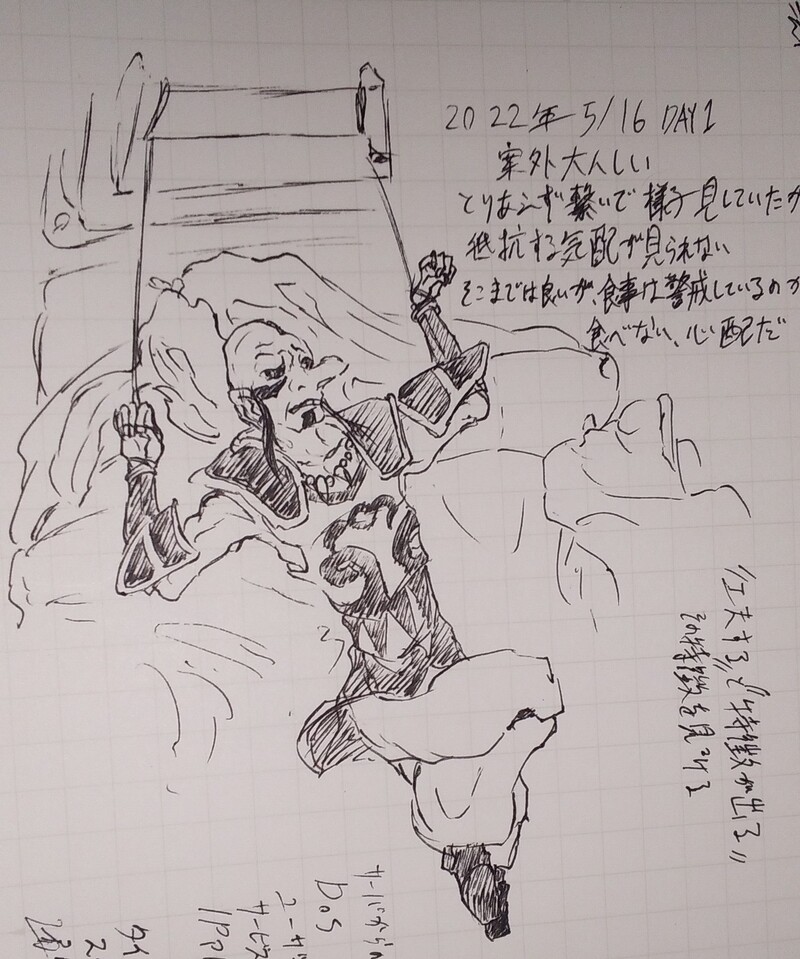 2022年 5/16 DAY1
案外大人しい
とりあえず繋いで様子見していたが
抵抗する気配が見られない
そこまでは良いが、食事は警戒しているのか
食べない、心配だ
"工夫する"と"特徴が出る"
その特徴を見つける
サーバからの
DoS
ユーザ
サービス